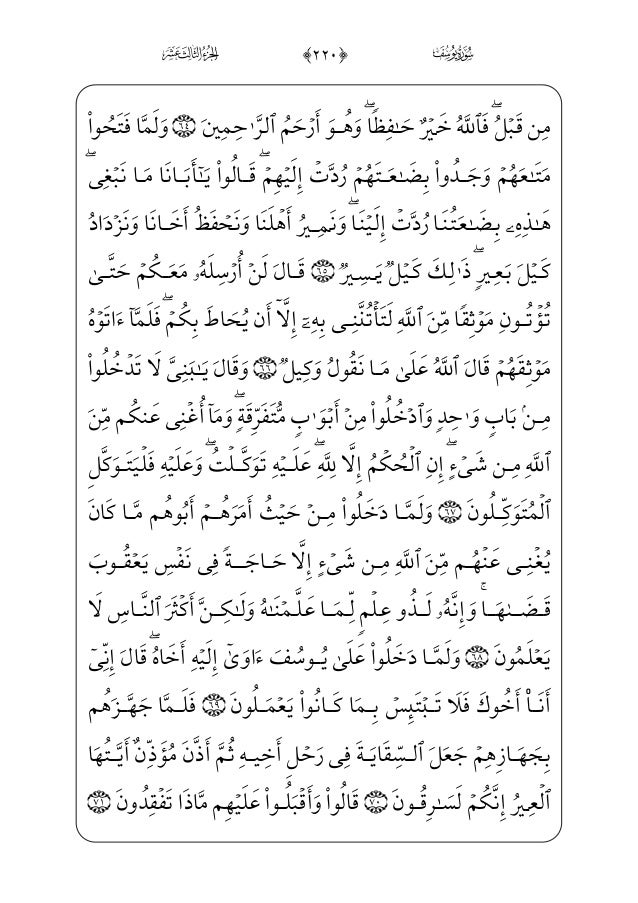 سُورَةُ يُوسُفَ ﴿٢٢٠﴾ الجُزْءُ الثَّالِثَ عَشَرَ
مِن قَبۡلُ فَٱللَّهُ خَيۡرٌ حَٰفِظٗاۖ وَهُوَ أَرۡحَمُ ٱلرَّٰحِمِينَ ٦٤ وَلَمَّا فَتَحُواْ
مَتَٰعَهُمۡ وَجَدُواْ بِضَٰعَتَهُمۡ رُدَّتۡ إِلَيۡهِمۡۖ قَالُواْ يَٰٓأَبَانَا مَا نَبۡغِيۖ
هَٰذِهِۦ بِضَٰعَتُنَا رُدَّتۡ إِلَيۡنَاۖ وَنَمِيرُ أَهۡلَنَا وَنَحۡفَظُ أَخَانَا وَنَزۡدَادُ
كَيۡلَ بَعِيرٖۖ ذَٰلِكَ كَيۡلٞ يَسِيرٞ ٦٥ قَالَ لَنۡ أُرۡسِلَهُۥ مَعَكُمۡ حَتَّىٰ
تُؤۡتُونِ مَوۡثِقٗا مِّنَ ٱللَّهِ لَتَأۡتُنَّنِي بِهِۦٓ إِلَّآ أَن يُحَاطَ بِكُمۡۖ فَلَمَّآ ءَاتَوۡهُ
مَوۡثِقَهُمۡ قَالَ ٱللَّهُ عَلَىٰ مَا نَقُولُ وَكِيلٞ ٦٦ وَقَالَ يَٰبَنِيَّ لَا تَدۡخُلُواْ
مِنۢ بَابٖ وَٰحِدٖ وَٱدۡخُلُواْ مِنۡ أَبۡوَٰبٖ مُّتَفَرِّقَةٖۖ وَمَآ أُغۡنِي عَنكُم مِّنَ
ٱللَّهِ مِن شَيۡءٍۖ إِنِ ٱلۡحُكۡمُ إِلَّا لِلَّهِۖ عَلَيۡهِ تَوَكَّلۡتُۖ وَعَلَيۡهِ فَلۡيَتَوَكَّلِ
ٱلۡمُتَوَكِّلُونَ ٦٧ وَلَمَّا دَخَلُواْ مِنۡ حَيۡثُ أَمَرَهُمۡ أَبُوهُم مَّا كَانَ
يُغۡنِي عَنۡهُم مِّنَ ٱللَّهِ مِن شَيۡءٍ إِلَّا حَاجَةٗ فِي نَفۡسِ يَعۡقُوبَ
قَضَىٰهَاۚ وَإِنَّهُۥ لَذُو عِلۡمٖ لِّمَا عَلَّمۡنَٰهُ وَلَٰكِنَّ أَكۡثَرَ ٱلنَّاسِ لَا
يَعۡلَمُونَ ٦٨ وَلَمَّا دَخَلُواْ عَلَىٰ يُوسُفَ ءَاوَىٰٓ إِلَيۡهِ أَخَاهُۖ قَالَ إِنِّيٓ
أَنَا۠ أَخُوكَ فَلَا تَبۡتَئِسۡ بِمَا كَانُواْ يَعۡمَلُونَ ٦٩ فَلَمَّا جَهَّزَهُم
بِجَهَازِهِمۡ جَعَلَ ٱلسِّقَايَةَ فِي رَحۡلِ أَخِيهِ ثُمَّ أَذَّنَ مُؤَذِّنٌ أَيَّتُهَا
ٱلۡعِيرُ إِنَّكُمۡ لَسَٰرِقُونَ ٧٠ قَالُواْ وَأَقۡبَلُواْ عَلَيۡهِم مَّاذَا تَفۡقِدُونَ ٧١